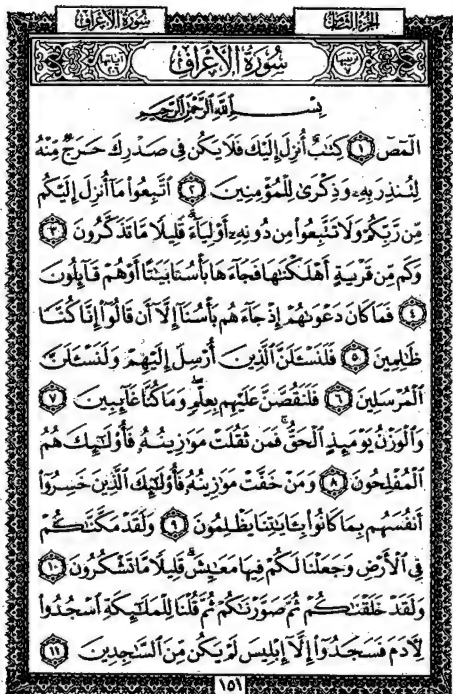 سُورَةُ الأَعْرَافِ
الجُزْءُ الثَّامِنُ
ترتيبها ٧
سُورَةُ الأَعْرَافِ
آياتها ٢٠٦
بِسْمِ اللَّهِ الرَّحْمَٰنِ الرَّحِيمِ
الٓمٓصٓ ١ كِتَٰبٌ أُنزِلَ إِلَيْكَ فَلَا يَكُن فِى صَدْرِكَ حَرَجٌ مِّنْهُ
لِتُنذِرَ بِهِۦ وَذِكْرَىٰ لِلْمُؤْمِنِينَ ٢ ٱتَّبِعُوا۟ مَآ أُنزِلَ إِلَيْكُم
مِّن رَّبِّكُمْ وَلَا تَتَّبِعُوا۟ مِن دُونِهِۦٓ أَوْلِيَآءَ ۗ قَلِيلًا مَّا تَذَكَّرُونَ ٣
وَكَم مِّن قَرْيَةٍ أَهْلَكْنَٰهَا فَجَآءَهَا بَأْسُنَا بَيَٰتًا أَوْ هُمْ قَآئِلُونَ
٤ فَمَا كَانَ دَعْوَىٰهُمْ إِذْ جَآءَهُم بَأْسُنَآ إِلَّآ أَن قَالُوٓا۟ إِنَّا كُنَّا
ظَٰلِمِينَ ٥ فَلَنَسْـَٔلَنَّ ٱلَّذِينَ أُرْسِلَ إِلَيْهِمْ وَلَنَسْـَٔلَنَّ
ٱلْمُرْسَلِينَ ٦ فَلَنَقُصَّنَّ عَلَيْهِم بِعِلْمٍ ۖ وَمَا كُنَّا غَآئِبِينَ ٧
وَٱلْوَزْنُ يَوْمَئِذٍ ٱلْحَقُّ ۚ فَمَن ثَقُلَتْ مَوَٰزِينُهُۥ فَأُو۟لَٰٓئِكَ هُمُ
ٱلْمُفْلِحُونَ ٨ وَمَنْ خَفَّتْ مَوَٰزِينُهُۥ فَأُو۟لَٰٓئِكَ ٱلَّذِينَ خَسِرُوٓا۟
أَنفُسَهُم بِمَا كَانُوا۟ بِـَٔايَٰتِنَا يَظْلِمُونَ ٩ وَلَقَدْ مَكَّنَّٰكُمْ
فِى ٱلْأَرْضِ وَجَعَلْنَا لَكُمْ فِيهَا مَعَٰيِشَ ۗ قَلِيلًا مَّا تَشْكُرُونَ ١٠
وَلَقَدْ خَلَقْنَٰكُمْ ثُمَّ صَوَّرْنَٰكُمْ ثُمَّ قُلْنَا لِلْمَلَٰٓئِكَةِ ٱسْجُدُوا۟
لِـَٔادَمَ فَسَجَدُوٓا۟ إِلَّآ إِبْلِيسَ لَمْ يَكُن مِّنَ ٱلسَّٰجِدِينَ ١١
١٥١